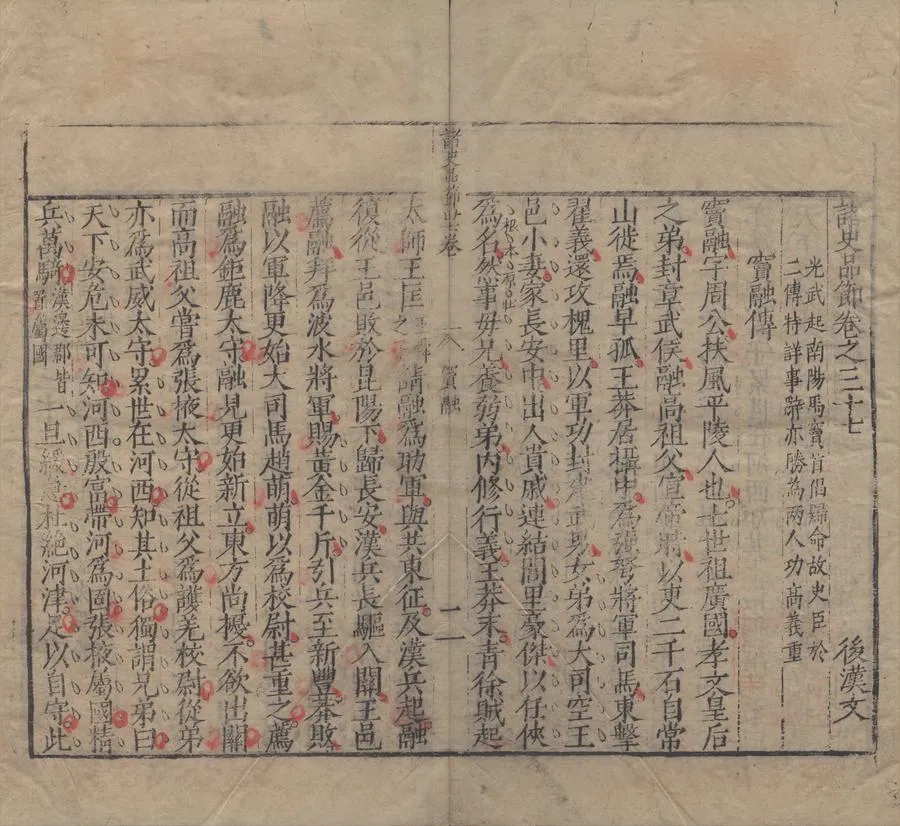 諸史品節卷之三十七
後漢文
光武起南陽馬竇首倡歸命故史臣於
二傳特詳事辭亦勝為兩人功高義重
竇融傳
竇融字周公扶風平陵人也七世祖廣國孝文皇后
之弟封章武侯融高祖父宣帝時以吏二千石自常
山徙焉融早孤王莽居攝中為強弩將軍司馬東擊
翟義還攻槐里以軍功封建武男女弟為大司空王
邑小妻家長安中出入貴戚連結閭里豪傑以任俠
根本原自此
為名然事母兄養弱弟內修行義王莽末青徐賊起
諸史品節 卷
竇融
一
太師王匡請融為助軍與共東征及漢兵起融
復從王邑敗於昆陽下歸長安漢兵長驅入關王邑
薦融拜為波水將軍賜黃金千斤引兵至新豐莽敗
融以軍降更始大司馬趙萌萌以為校尉甚重之薦
融為鉅鹿太守融見更始新立東方尚擾不欲出關
而高祖父嘗為張掖太守從祖父為護羌校尉從弟
亦為武威太守累世在河西知其土俗獨謂兄弟曰
天下安危未可知河西殷富帶河為固張掖屬國精
兵萬騎漢邊郡皆置屬國一旦緩急杜絕河津足以自守此